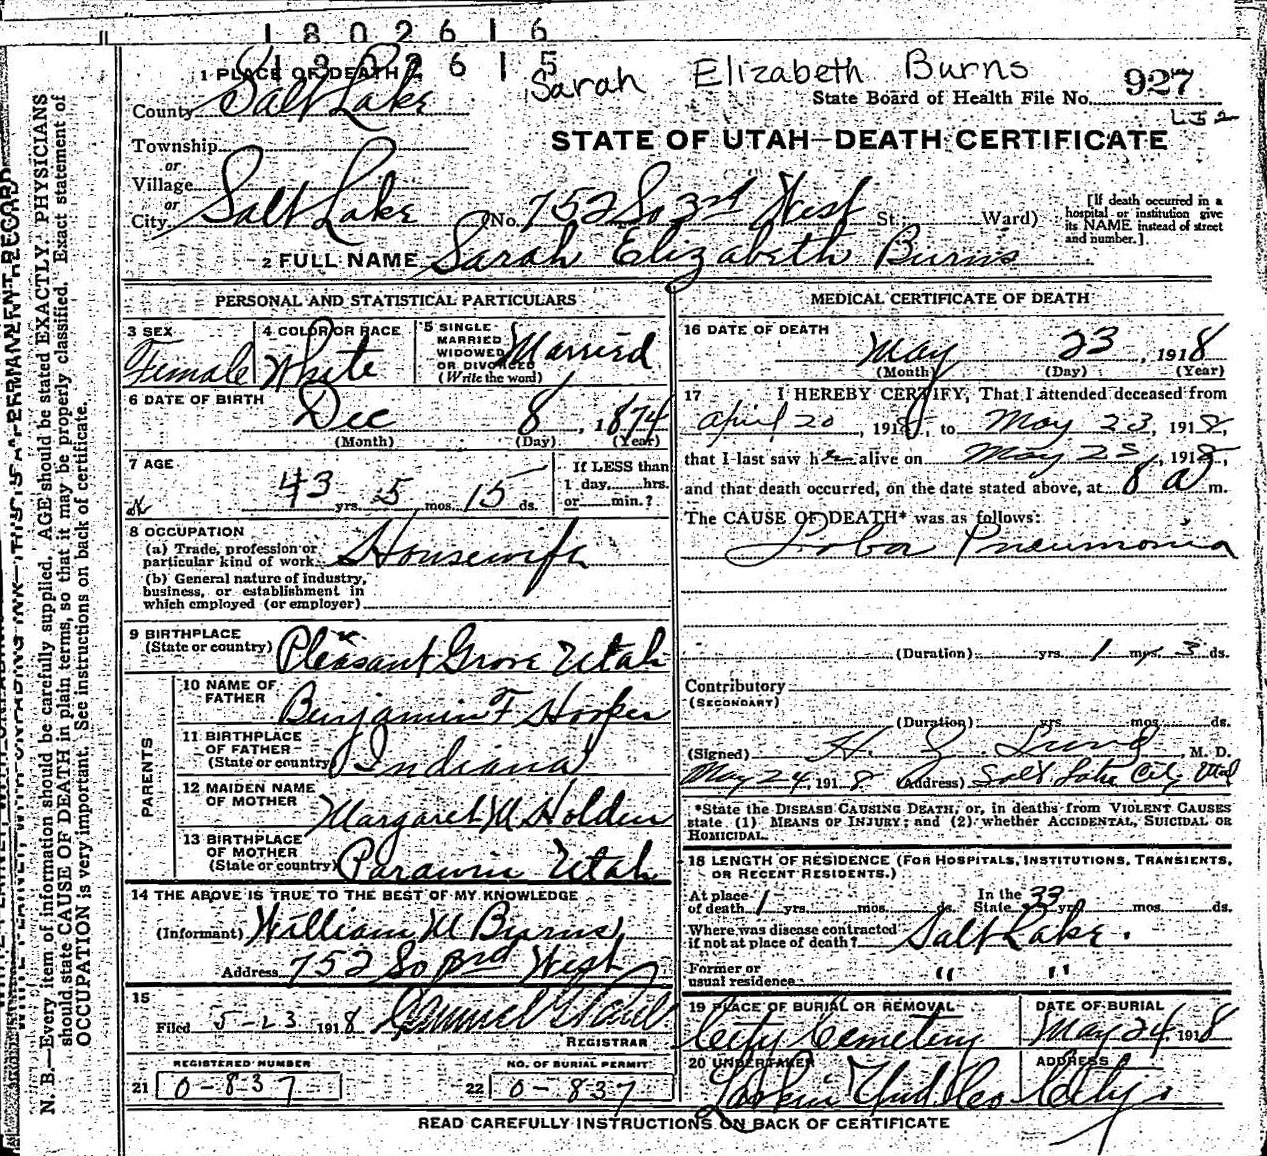 1802616
1802615
Sarah Elizabeth Burns
927
State Board of Health File No.
STATE OF UTAH—DEATH CERTIFICATE
1 PLACE OF DEATH
County Salt Lake
Township
or
Village
or
City Salt Lake No. 752 So 3rd West St. Ward)
[If death occurred in a hospital or institution give its NAME instead of street and number.]
2 FULL NAME Sarah Elizabeth Burns
PERSONAL AND STATISTICAL PARTICULARS
3 SEX Female
4 COLOR OR RACE White
5 SINGLE MARRIED WIDOWED OR DIVORCED (Write the word) Married
6 DATE OF BIRTH Dec 8, 1874
(Month) (Day) (Year)
7 AGE 43 yrs. 5 mos. 15 ds.
If LESS than 1 day, hrs. or min.?
8 OCCUPATION
(a) Trade, profession or particular kind of work Housewife
(b) General nature of industry, business, or establishment in which employed (or employer)
9 BIRTHPLACE (State or country) Pleasant Grove Utah
PARENTS
10 NAME OF FATHER Benjamin F Hooper
11 BIRTHPLACE OF FATHER (State or country) Indiana
12 MAIDEN NAME OF MOTHER Margaret M Holden
13 BIRTHPLACE OF MOTHER (State or country) Parawin Utah
14 THE ABOVE IS TRUE TO THE BEST OF MY KNOWLEDGE
(Informant) William M Burns
Address 752 So 3rd West
15
Filed 5-23 1918
REGISTRAR
REGISTERED NUMBER
21 0-837
NO. OF BURIAL PERMIT
22 0-837
MEDICAL CERTIFICATE OF DEATH
16 DATE OF DEATH
May 23, 1918
(Month) (Day) (Year)
17 I HEREBY CERTIFY, That I attended deceased from
April 20, 1918, to May 23, 1918,
that I last saw her alive on May 23, 1918,
and that death occurred, on the date stated above, at 8 a m.
The CAUSE OF DEATH* was as follows:
Lobar Pneumonia
(Duration) yrs. 1 mos. 3 ds.
Contributory
(SECONDARY)
(Duration) yrs. mos. ds.
(Signed) M. D.
May 24, 1918 (Address) Salt Lake City Utah
*State the DISEASE CAUSING DEATH, or, in deaths from VIOLENT CAUSES state (1) MEANS OF INJURY; and (2) whether ACCIDENTAL, SUICIDAL OR HOMICIDAL.
18 LENGTH OF RESIDENCE (FOR HOSPITALS, INSTITUTIONS, TRANSIENTS, OR RECENT RESIDENTS.)
At place of death 1 yrs. mos. ds. In the State 33 yrs. mos. ds.
Where was disease contracted if not at place of death? Salt Lake.
Former or usual residence " "
19 PLACE OF BURIAL OR REMOVAL City Cemetery
DATE OF BURIAL May 24, 1918
20 UNDERTAKER
ADDRESS City
READ CAREFULLY INSTRUCTIONS ON BACK OF CERTIFICATE
N. B.—Every item of information should be carefully supplied. AGE should be stated EXACTLY. PHYSICIANS
should state CAUSE OF DEATH in plain terms, so that it may be properly classified. Exact statement of
OCCUPATION is very important. See instructions on back of certificate.